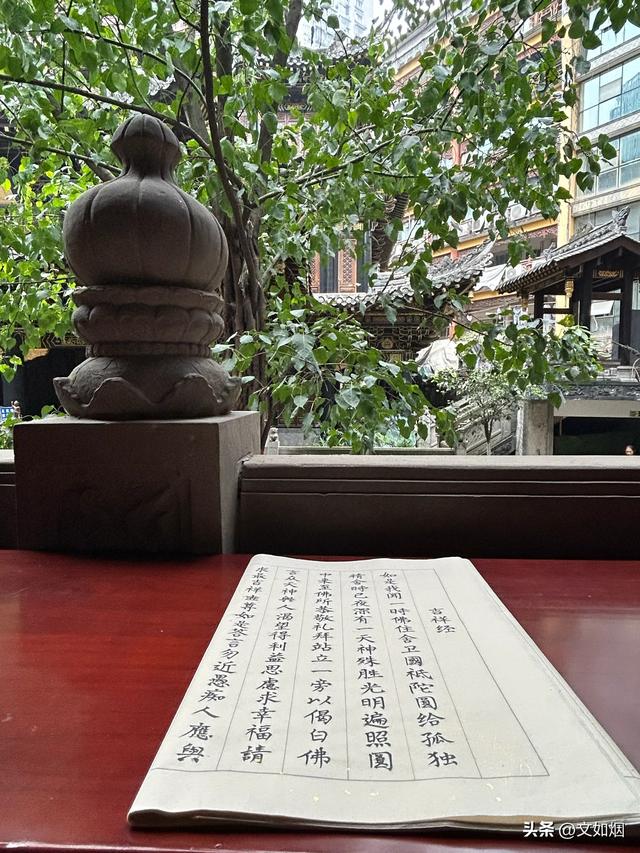 吉祥经
如是我闻一时佛住舍卫國祇陀園给孤独
精舍时已夜深有一天神殊胜光明遍照園
中来至佛所恭敬礼拜站立一旁以偈白佛
言众天神與人渴望得利益思慮求幸福請
求最吉祥世尊如是答言勿近愚痴人應與
头条 @文如烟